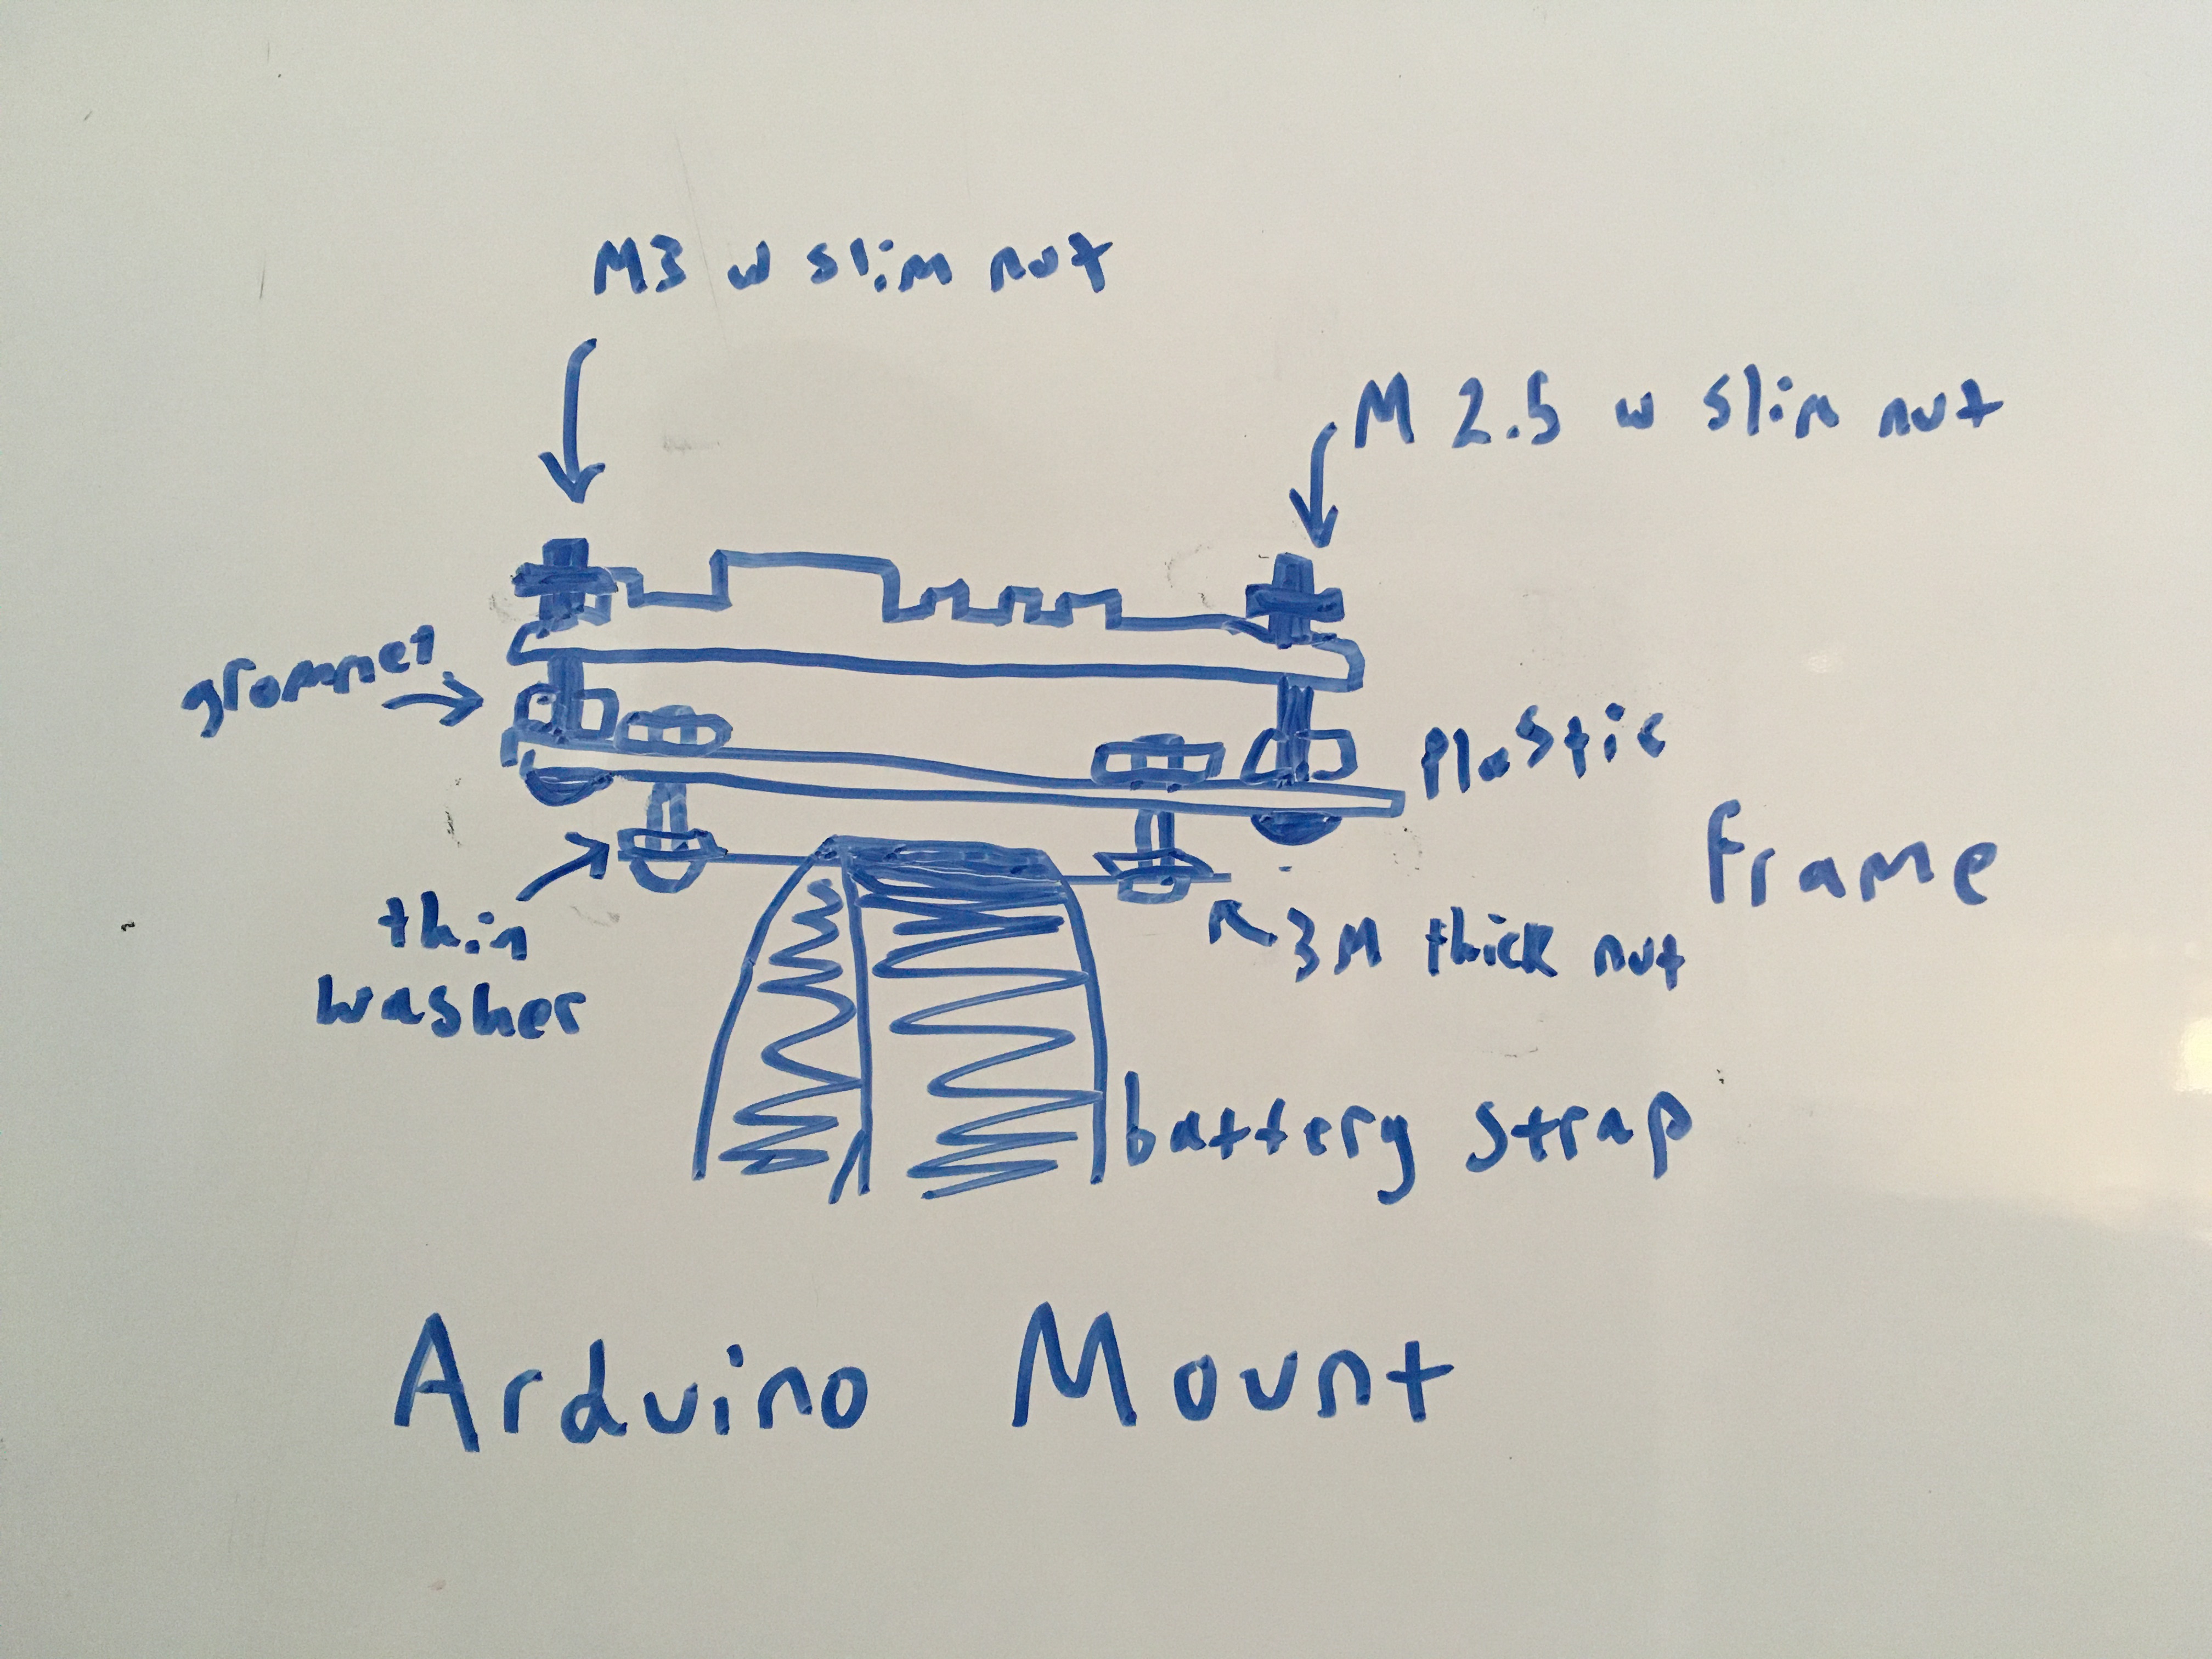 M3 w slim nut
M 2.5 w slim nut
grommet
Plastic
frame
thin
washer
3M thick nut
battery strap
Arduino Mount